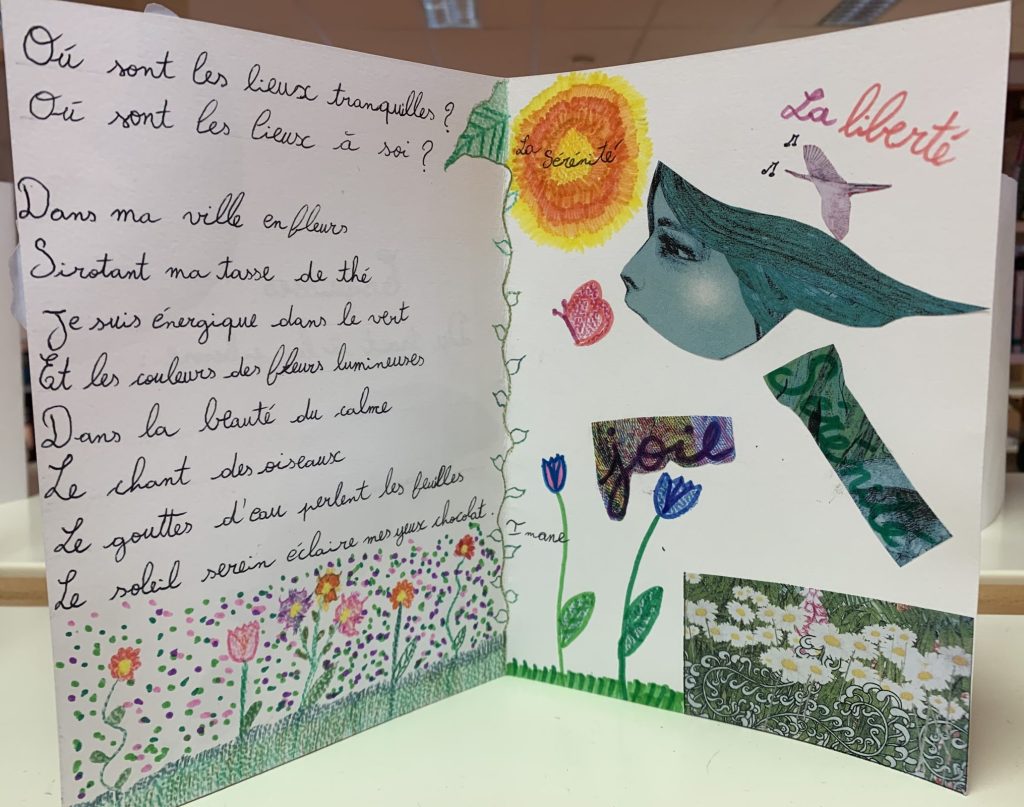 Où sont les lieux tranquilles ?
Où sont les lieux à soi ?
Dans ma ville en fleurs
Sirotant ma tasse de thé
Je suis énergique dans le vert
Et les couleurs des fleurs lumineuses
Dans la beauté du calme
Le chant des oiseaux
Le gouttes d'eau perlent les feuilles
Le soleil serein éclaire mes yeux chocolat.
La Sérénité
La liberté
joie
Imane